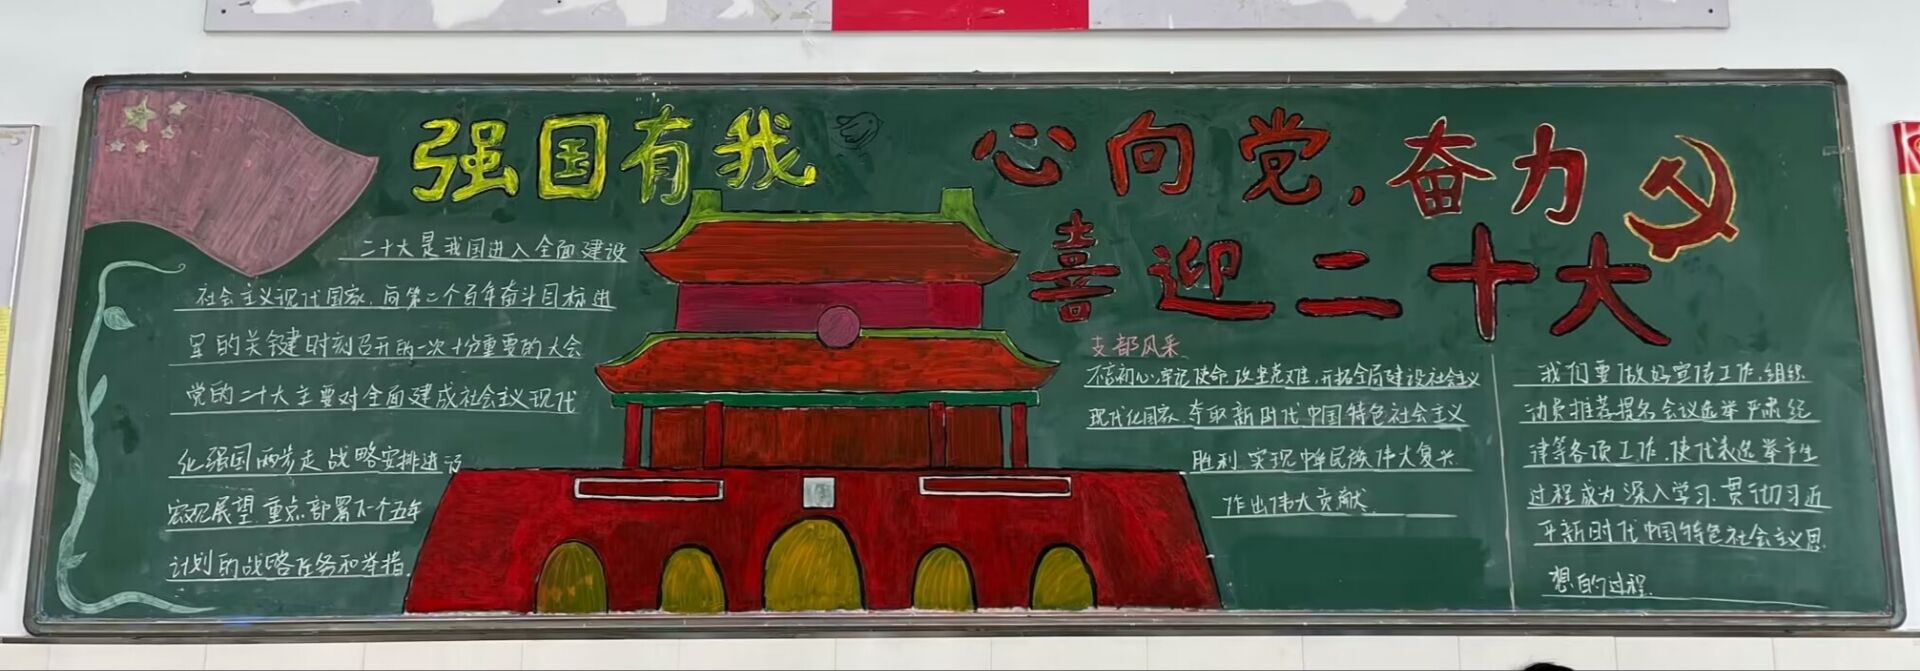 强国有我
心向党，奋力
喜迎二十大
二十大是我国进入全面建设
社会主义现代国家、向第二个百年奋斗目标进
军的关键时刻召开的一次十分重要的大会
党的二十大主要对全面建成社会主义现代
化强国两步走战略安排进行
宏观展望 重点部署下个五年
计划的战略任务和举措
支部风采
不忘初心,牢记使命,攻坚克难,开拓全局建设社会主义
现代化国家 夺取新时代中国特色社会主义
胜利 实现中华民族伟大复兴
作出伟大贡献
我们要做好宣传工作,组织
动员推荐提名会议选举严肃纪
律等各项工作,使代表选举产生
过程成为深入学习 贯彻习近
平新时代中国特色社会主义思
想的过程